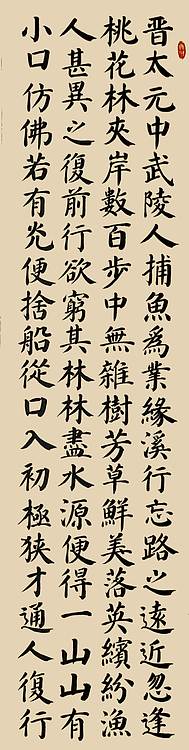 晋太元中武陵人捕魚爲業緣溪行忘路之遠近忽逢
桃花林夾岸數百步中無雜樹芳草鮮美落英繽紛漁
人甚異之復前行欲窮其林林盡水源便得一山山有
小口仿佛若有光便捨船從口入初極狭才通人復行